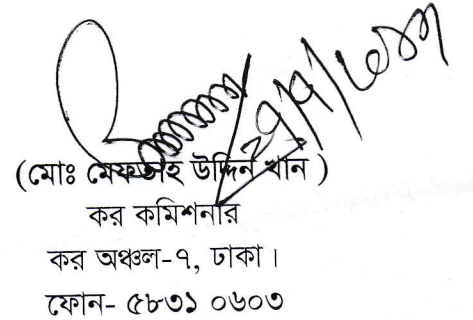 (মোঃ মেফতাহ উদ্দিন খান )
কর কমিশনার
কর অঞ্চল-৭, ঢাকা।
ফোন- ৫৮৩১ ০৬০৩